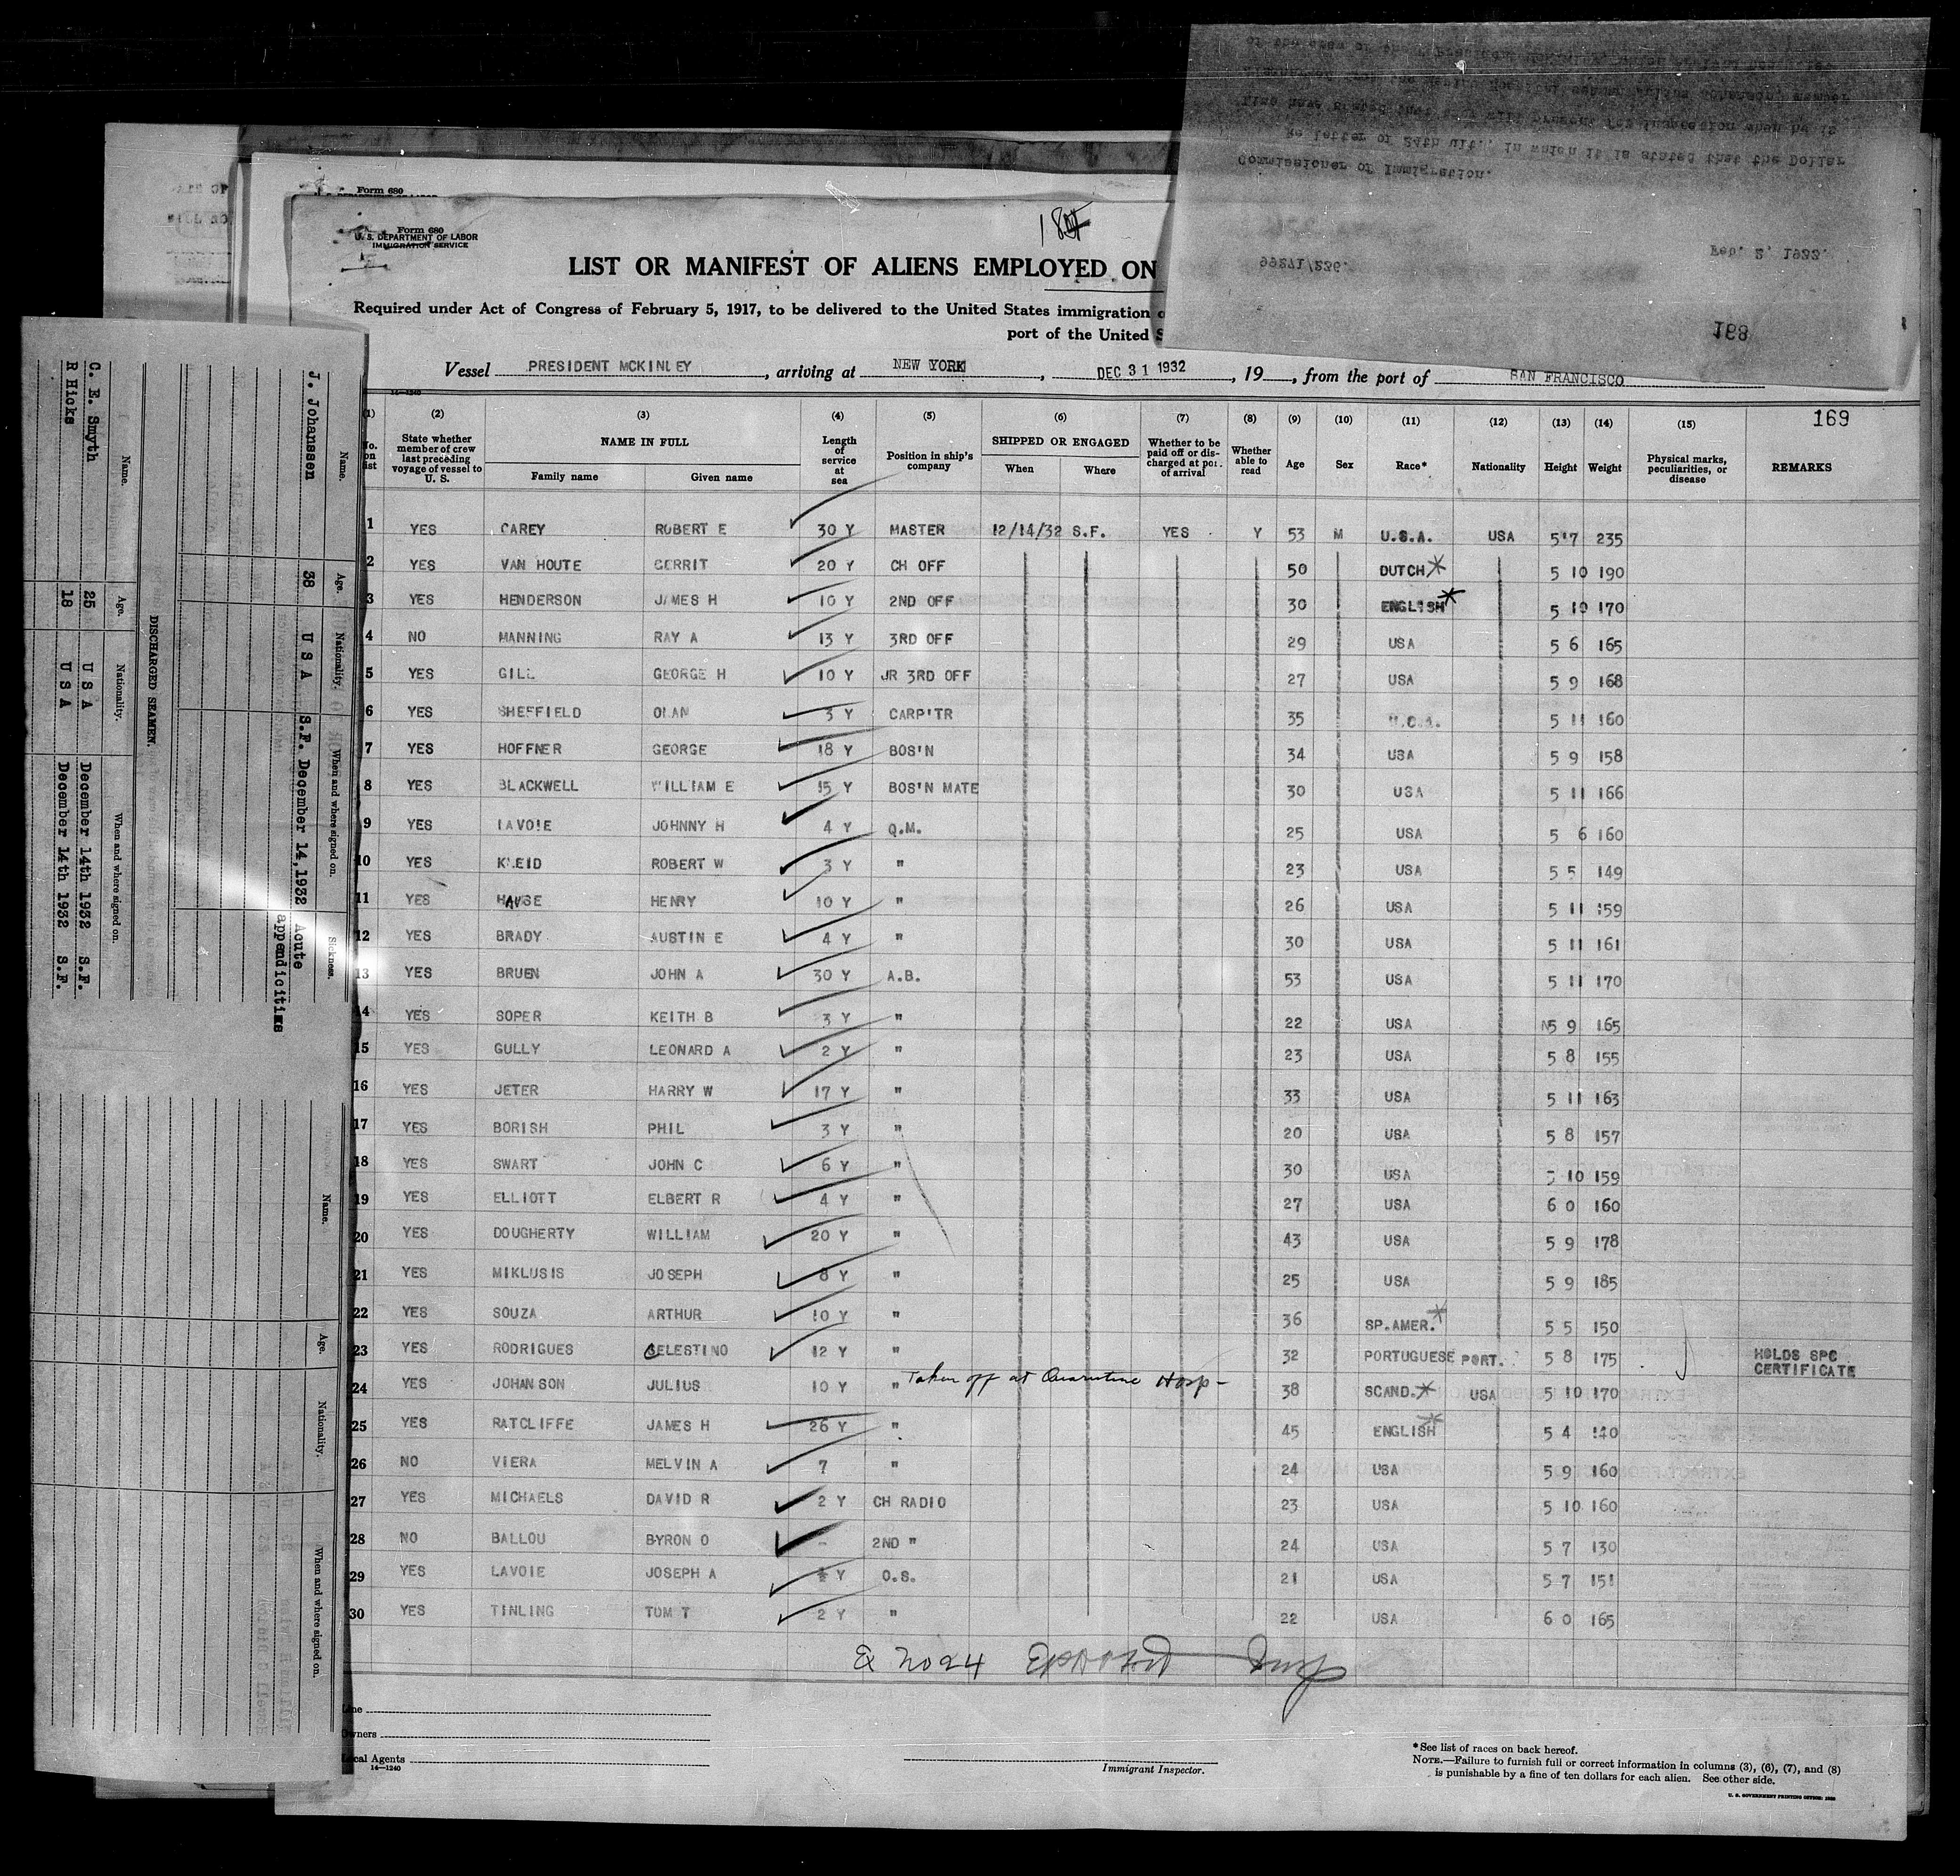 Form 680
Form 680
U. S. DEPARTMENT OF LABOR
IMMIGRATION SERVICE
LIST OR MANIFEST OF ALIENS EMPLOYED ON
Required under Act of Congress of February 5, 1917, to be delivered to the United States immigration
port of the United S
168
Feb. 2, 1933.
99271/236.
Commissioner of Immigration.
Re letter of 24th ult., in which it is stated that the Dollar
Line have stated that they will present for inspection when he is
Vessel PRESIDENT MCKINLEY, arriving at NEW YORK, DEC 31 1932, 19, from the port of SAN FRANCISCO
14-1240
169
(1) (2) (3) (4) (5) (6) (7) (8) (9) (10) (11) (12) (13) (14) (15)
No. on list State whether member of crew last preceding voyage of vessel to U. S. NAME IN FULL Family name Given name Length of service at sea Position in ship's company SHIPPED OR ENGAGED When Where Whether to be paid off or discharged at port of arrival Whether able to read Age Sex Race* Nationality Height Weight Physical marks, peculiarities, or disease REMARKS
1 YES CAREY ROBERT E 30 Y MASTER 12/14/32 S.F. YES Y 53 M U.S.A. USA 5'7 235
2 YES VAN HOUTE GERRIT 20 Y CH OFF 50 DUTCH 5 10 190
3 YES HENDERSON JAMES H 10 Y 2ND OFF 30 ENGLISH 5 10 170
4 NO MANNING RAY A 13 Y 3RD OFF 29 USA 5 6 165
5 YES GILL GEORGE H 10 Y JR 3RD OFF 27 USA 5 9 168
6 YES SHEFFIELD OLAN 3 Y CARP'TR 35 U.S.A. 5 11 160
7 YES HOFFNER GEORGE 18 Y BOS'N 34 USA 5 9 158
8 YES BLACKWELL WILLIAM E 15 Y BOS'N MATE 30 USA 5 11 166
9 YES LAVOIE JOHNNY H 4 Y Q.M. 25 USA 5 6 160
10 YES KLEID ROBERT W 3 Y " 23 USA 5 5 149
11 YES HAUSE HENRY 10 Y " 26 USA 5 11 159
12 YES BRADY AUSTIN E 4 Y " 30 USA 5 11 161
13 YES BRUEN JOHN A 30 Y A.B. 53 USA 5 11 170
14 YES SOPER KEITH B 3 Y " 22 USA 5 9 165
15 YES GULLY LEONARD A 2 Y " 23 USA 5 8 155
16 YES JETER HARRY W 17 Y " 33 USA 5 11 163
17 YES BORISH PHIL 3 Y " 20 USA 5 8 157
18 YES SWART JOHN C 6 Y " 30 USA 5 10 159
19 YES ELLIOTT ELBERT R 4 Y " 27 USA 6 0 160
20 YES DOUGHERTY WILLIAM 20 Y " 43 USA 5 9 178
21 YES MIKLUSIS JOSEPH 8 Y " 25 USA 5 9 185
22 YES SOUZA ARTHUR 10 Y " 36 SP.AMER. 5 5 150
23 YES RODRIGUES CELESTINO 12 Y " 32 PORTUGUESE PORT. 5 8 175 HOLDS SPC CERTIFICATE
24 YES JOHANSON JULIUS 10 Y " Taken off at Quarantine Hosp- 38 SCAND. USA 5 10 170
25 YES RATCLIFFE JAMES H 26 Y " 45 ENGLISH 5 4 140
26 NO VIERA MELVIN A 7 " 24 USA 5 9 160
27 YES MICHAELS DAVID R 2 Y CH RADIO 23 USA 5 10 160
28 NO BALLOU BYRON O - 2ND " 24 USA 5 7 130
29 YES LAVOIE JOSEPH A ½ Y O.S. 21 USA 5 7 151
30 YES TINLING TOM T 2 Y " 22 USA 6 0 165
Line
Owners
Local Agents
14-1240
Immigrant Inspector.
*See list of races on back hereof.
NOTE.—Failure to furnish full or correct information in columns (3), (6), (7), and (8)
is punishable by a fine of ten dollars for each alien. See other side.
U. S. GOVERNMENT PRINTING OFFICE
Name. Age. Nationality. When and where signed on. Sickness.
J. Johanssen 38 U S A S.F. December 14,1932 Acute
appendicitims
DISCHARGED SEAMEN.
Name. Age. Nationality. When and where signed on.
C. E. Smyth 25 U S A December 14th 1932 S.F.
R Hicks 18 U S A December 14th 1932 S.F.
Name. Age. Nationality. When and where signed on.